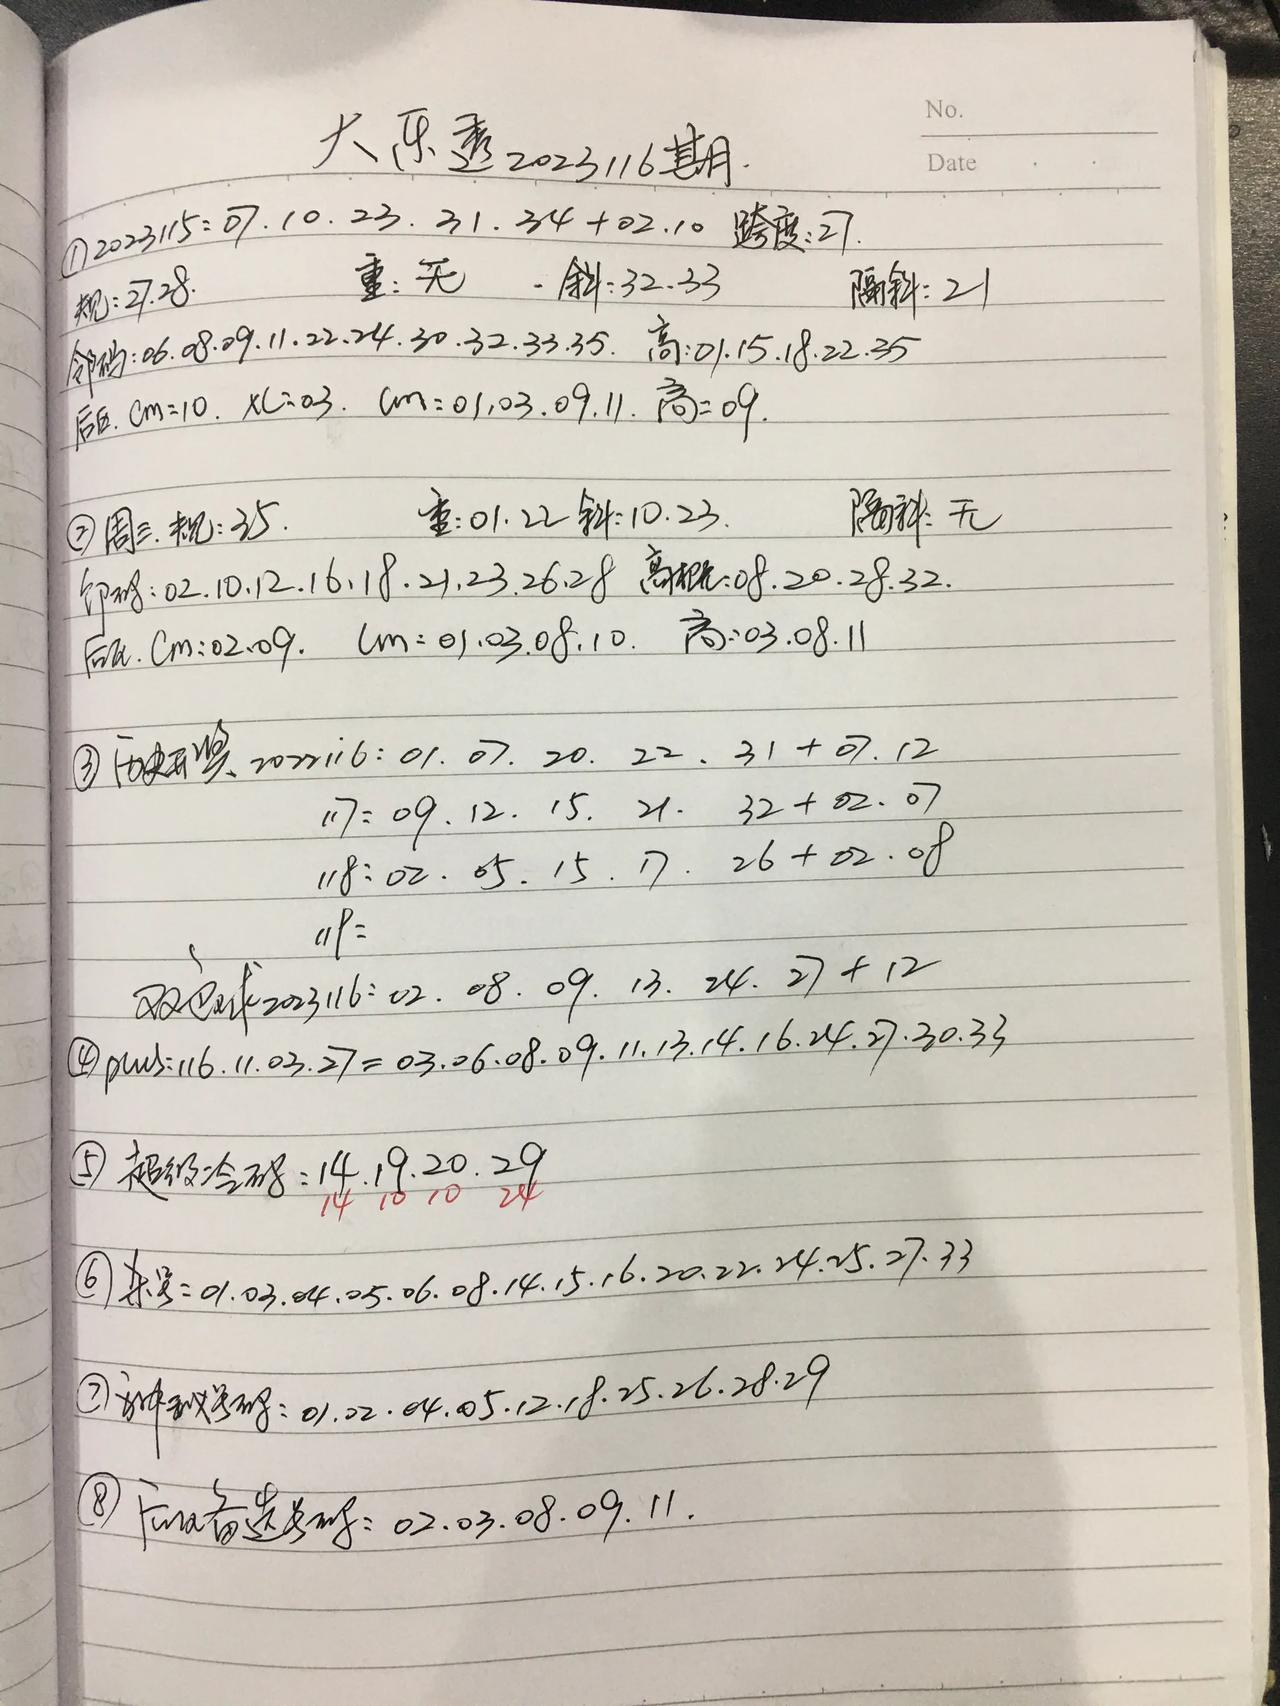 No.
Date
大乐透2023116期.
①2023115=07.10.23.31.34+02.10 跨度:27.
规:27.28. 重:无 斜:32.33 隔斜:21
邻码:06.08.09.11.22.24.30.32.33.35. 高:01.15.18.22.35
后区.Cm=10. XL=03. Lm=01.03.09.11. 高=09.
②周三.规:35. 重:01.22 斜:10.23. 隔斜:无
邻码:02.10.12.16.18.21.23.26.28 高概:08.20.28.32.
后区.Cm:02.09. Lm=01.03.08.10. 高:03.08.11
③历史开奖.2022116:01.07.20.22.31+07.12
117=09.12.15.21.32+02.07
118:02.05.15.17.26+02.08
119=
双色球2023116:02.08.09.13.24.27+12
④plus:116.11.03.27=03.06.08.09.11.13.14.16.24.27.30.33
⑤超级冷码:14.19.20.29
14 10 10 24
⑥杀号=01.03.04.05.06.08.14.15.16.20.22.24.25.27.33
⑦神秘号码:01.02.04.05.12.18.25.26.28.29
⑧后区备选号码:02.03.08.09.11.